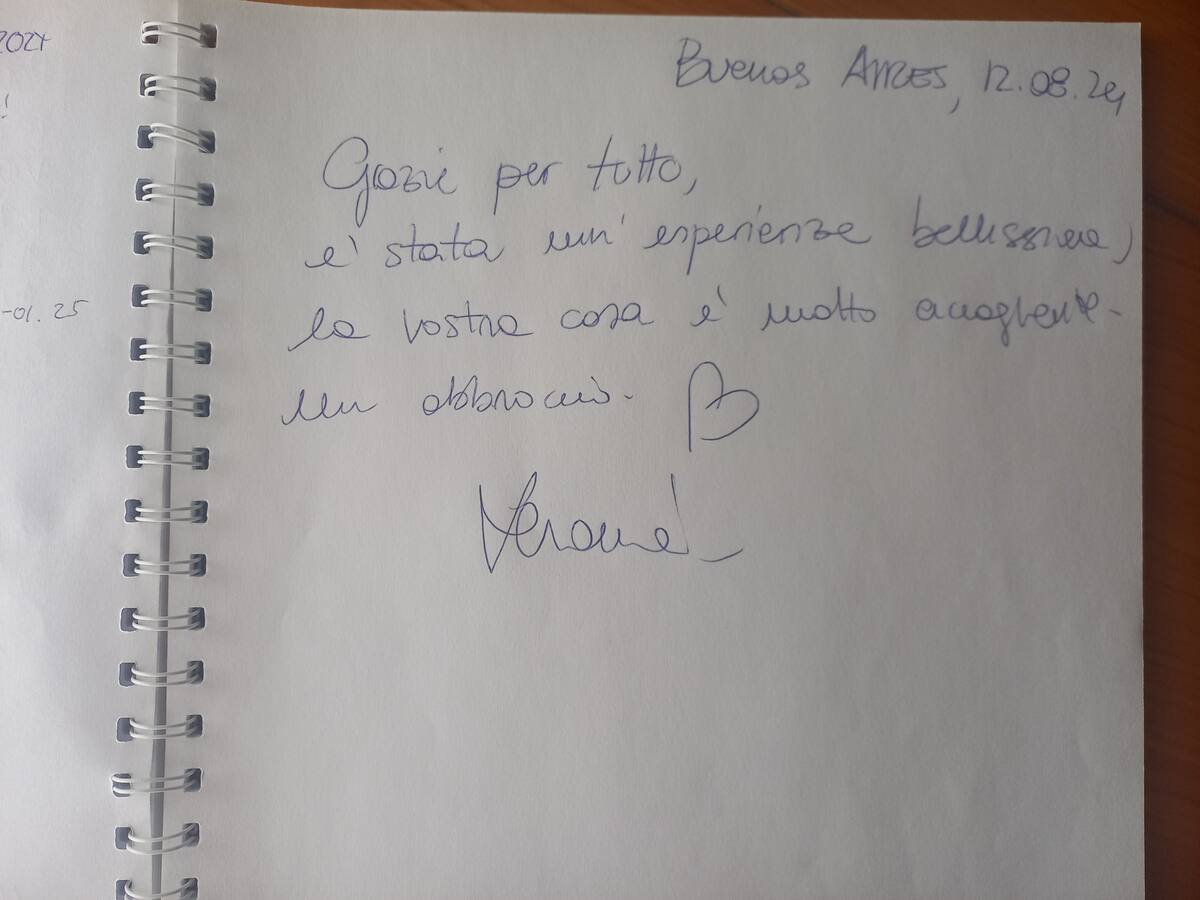 2024
!
-01. 25
Buenos AIRES, 12.08.24
Grazie per tutto,
e' stata un'esperienza bellissima,
la vostra casa e' molto accogliente.
un abbraccio.